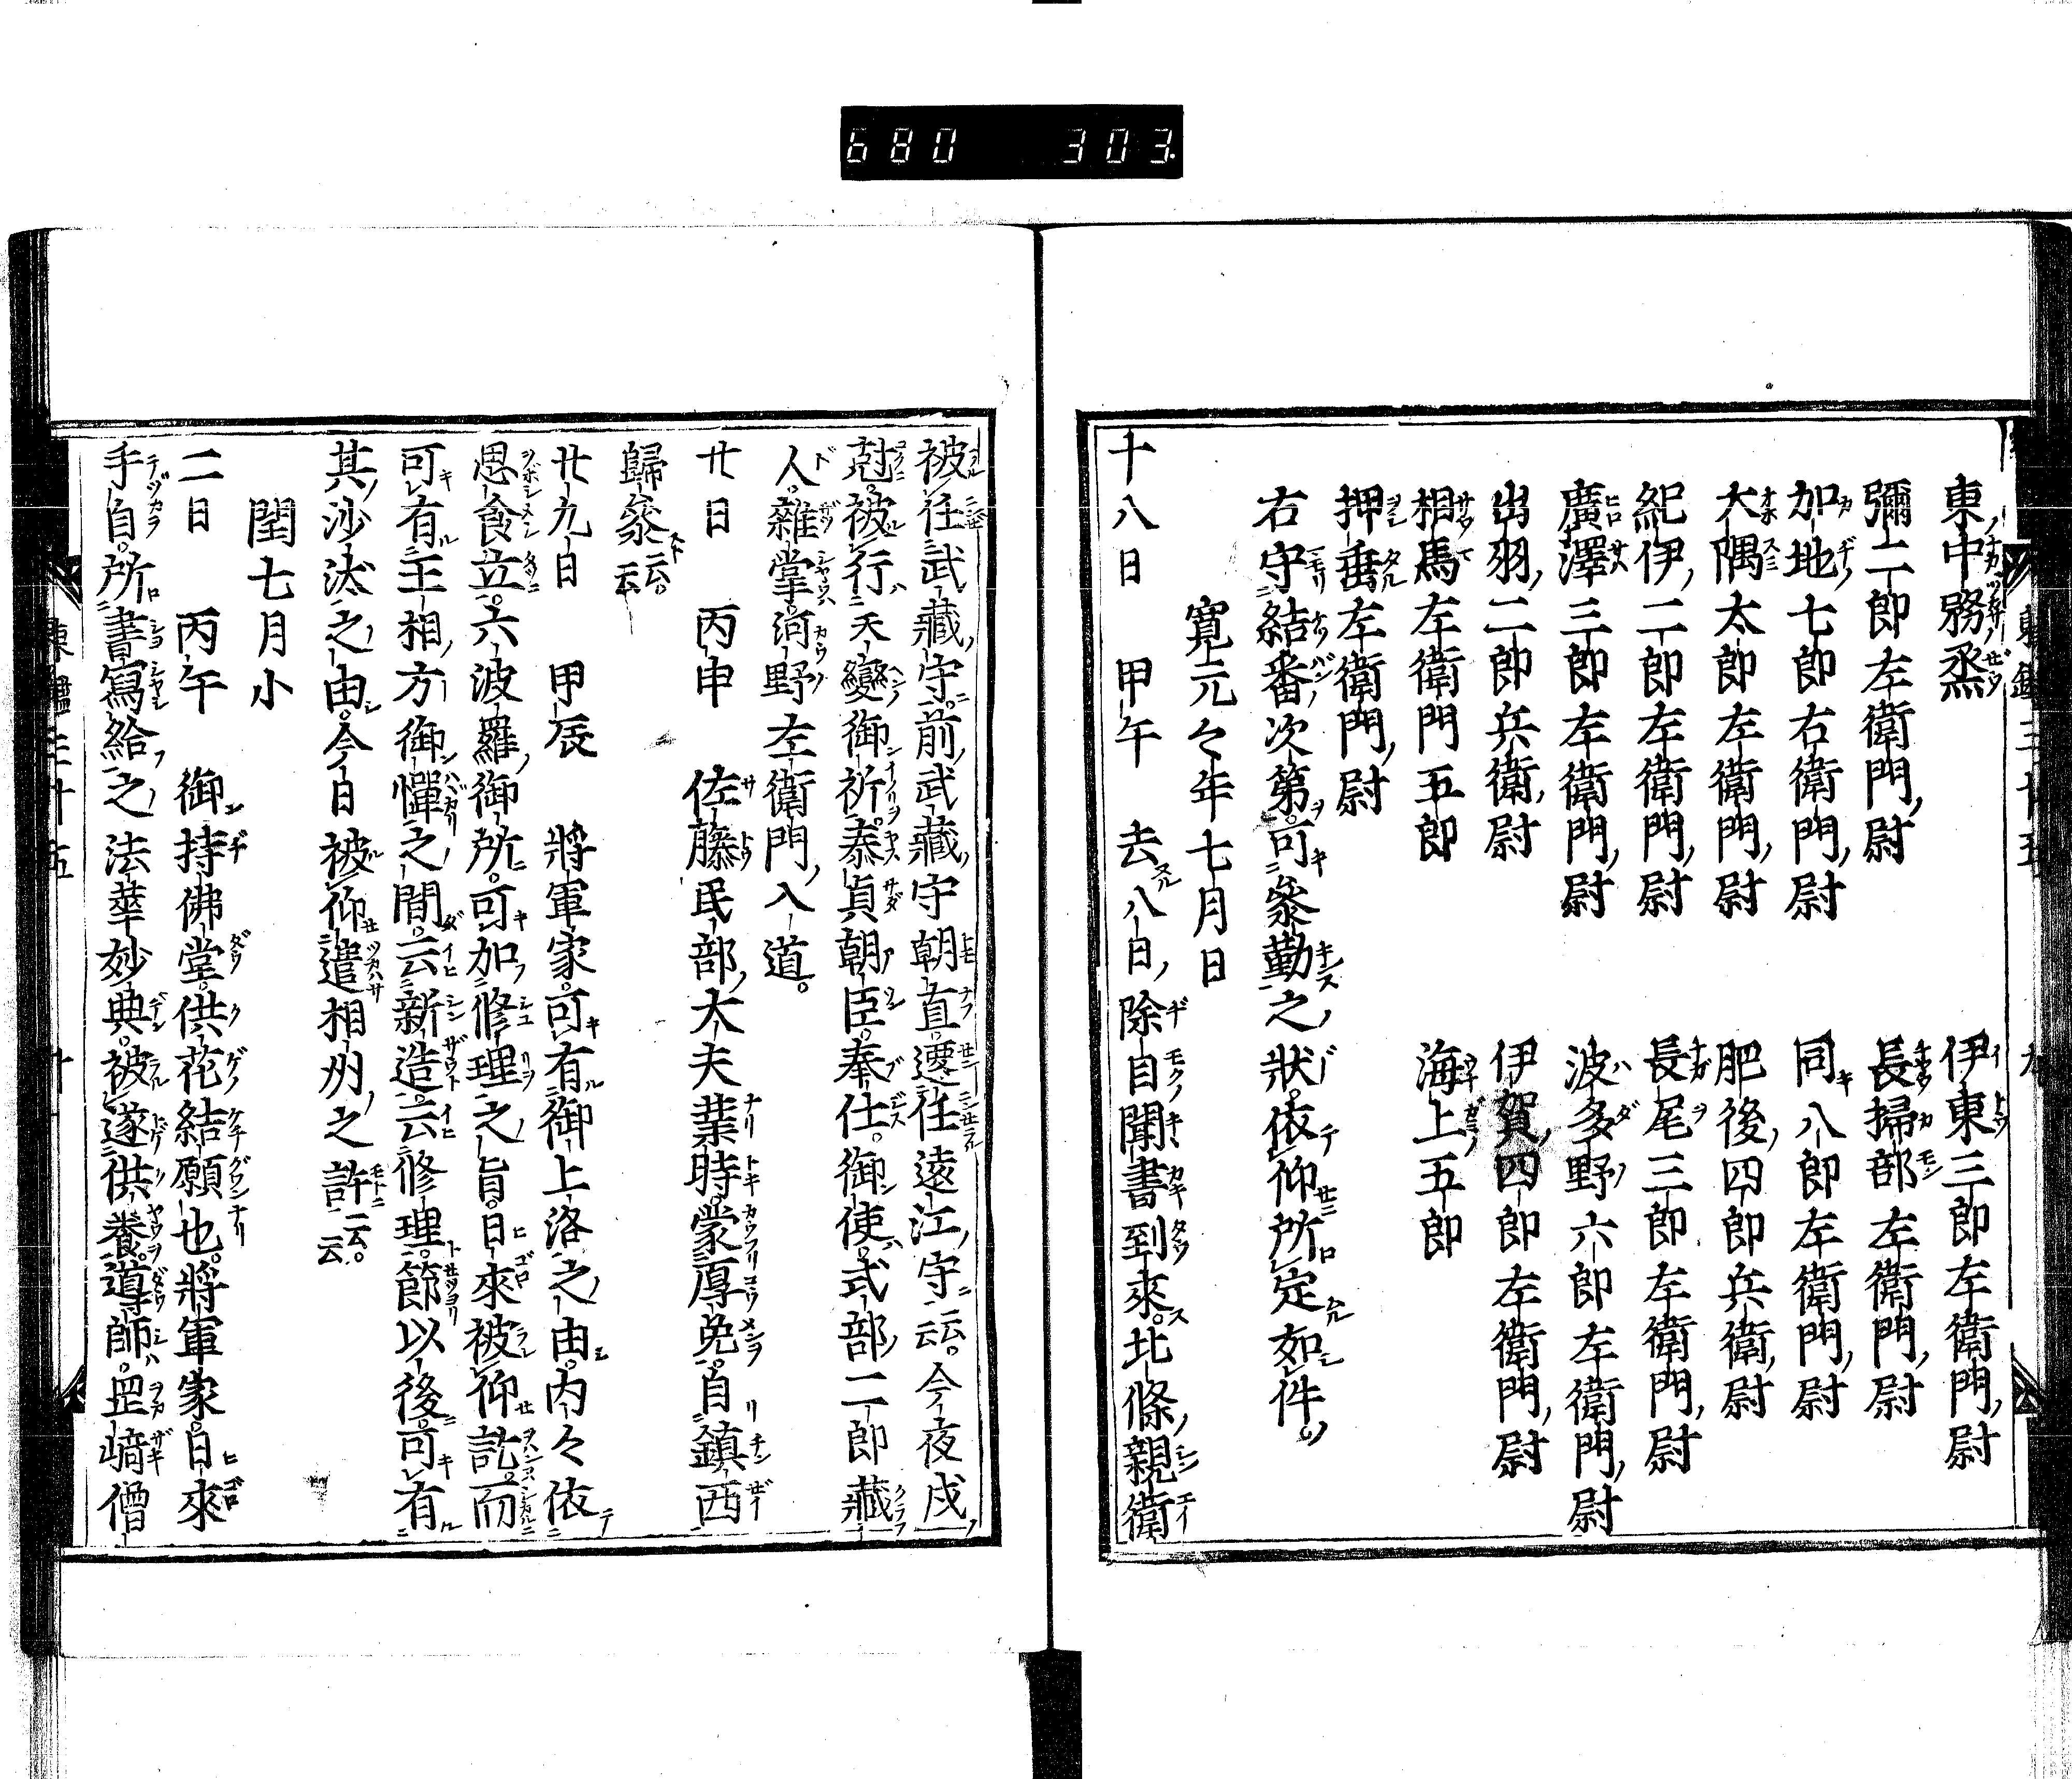 680 303
東中務烝 伊東三郎左衛門尉
彌二郎左衛門尉 長掃部左衛門尉
加地七郎右衛門尉 同八郎左衛門尉
大隅太郎左衛門尉 肥後四郎兵衛尉
紀伊二郎左衛門尉 長尾三郎左衛門尉
廣澤三郎左衛門尉 波多野六郎左衛門尉
出羽二郎兵衛尉 伊賀四郎左衛門尉
相馬左衛門五郎 海上五郎
押垂左衛門尉
右守結番次第可參勤之狀依仰所定如件
寛元々年七月日
十八日 甲午 去八日除目聞書到來。北條親衛
被任武藏守。前武藏守朝直。遷任遠江守云云。今夜戌
尅。被行天變御祈。泰貞朝臣。奉仕。御使式部二郎藏
人。雜掌河野左衛門入道。
廿日 丙申 佐藤民部大夫業時。蒙厚免。自鎮西
歸參云云。
廿九日 甲辰 將軍家。可有御上洛之由。内々依
思食立。六波羅御所。可加修理之旨。日來被仰訖。而
可有王相方御憚之間。云新造。云修理。節以後可有
其沙汰之由。今日被仰遣相州之許云云。
閏七月小
二日 丙午 御持佛堂。供花結願也。將軍家。日來
手自。所書寫給之法華妙典。被遂供養。導師。岡﨑僧